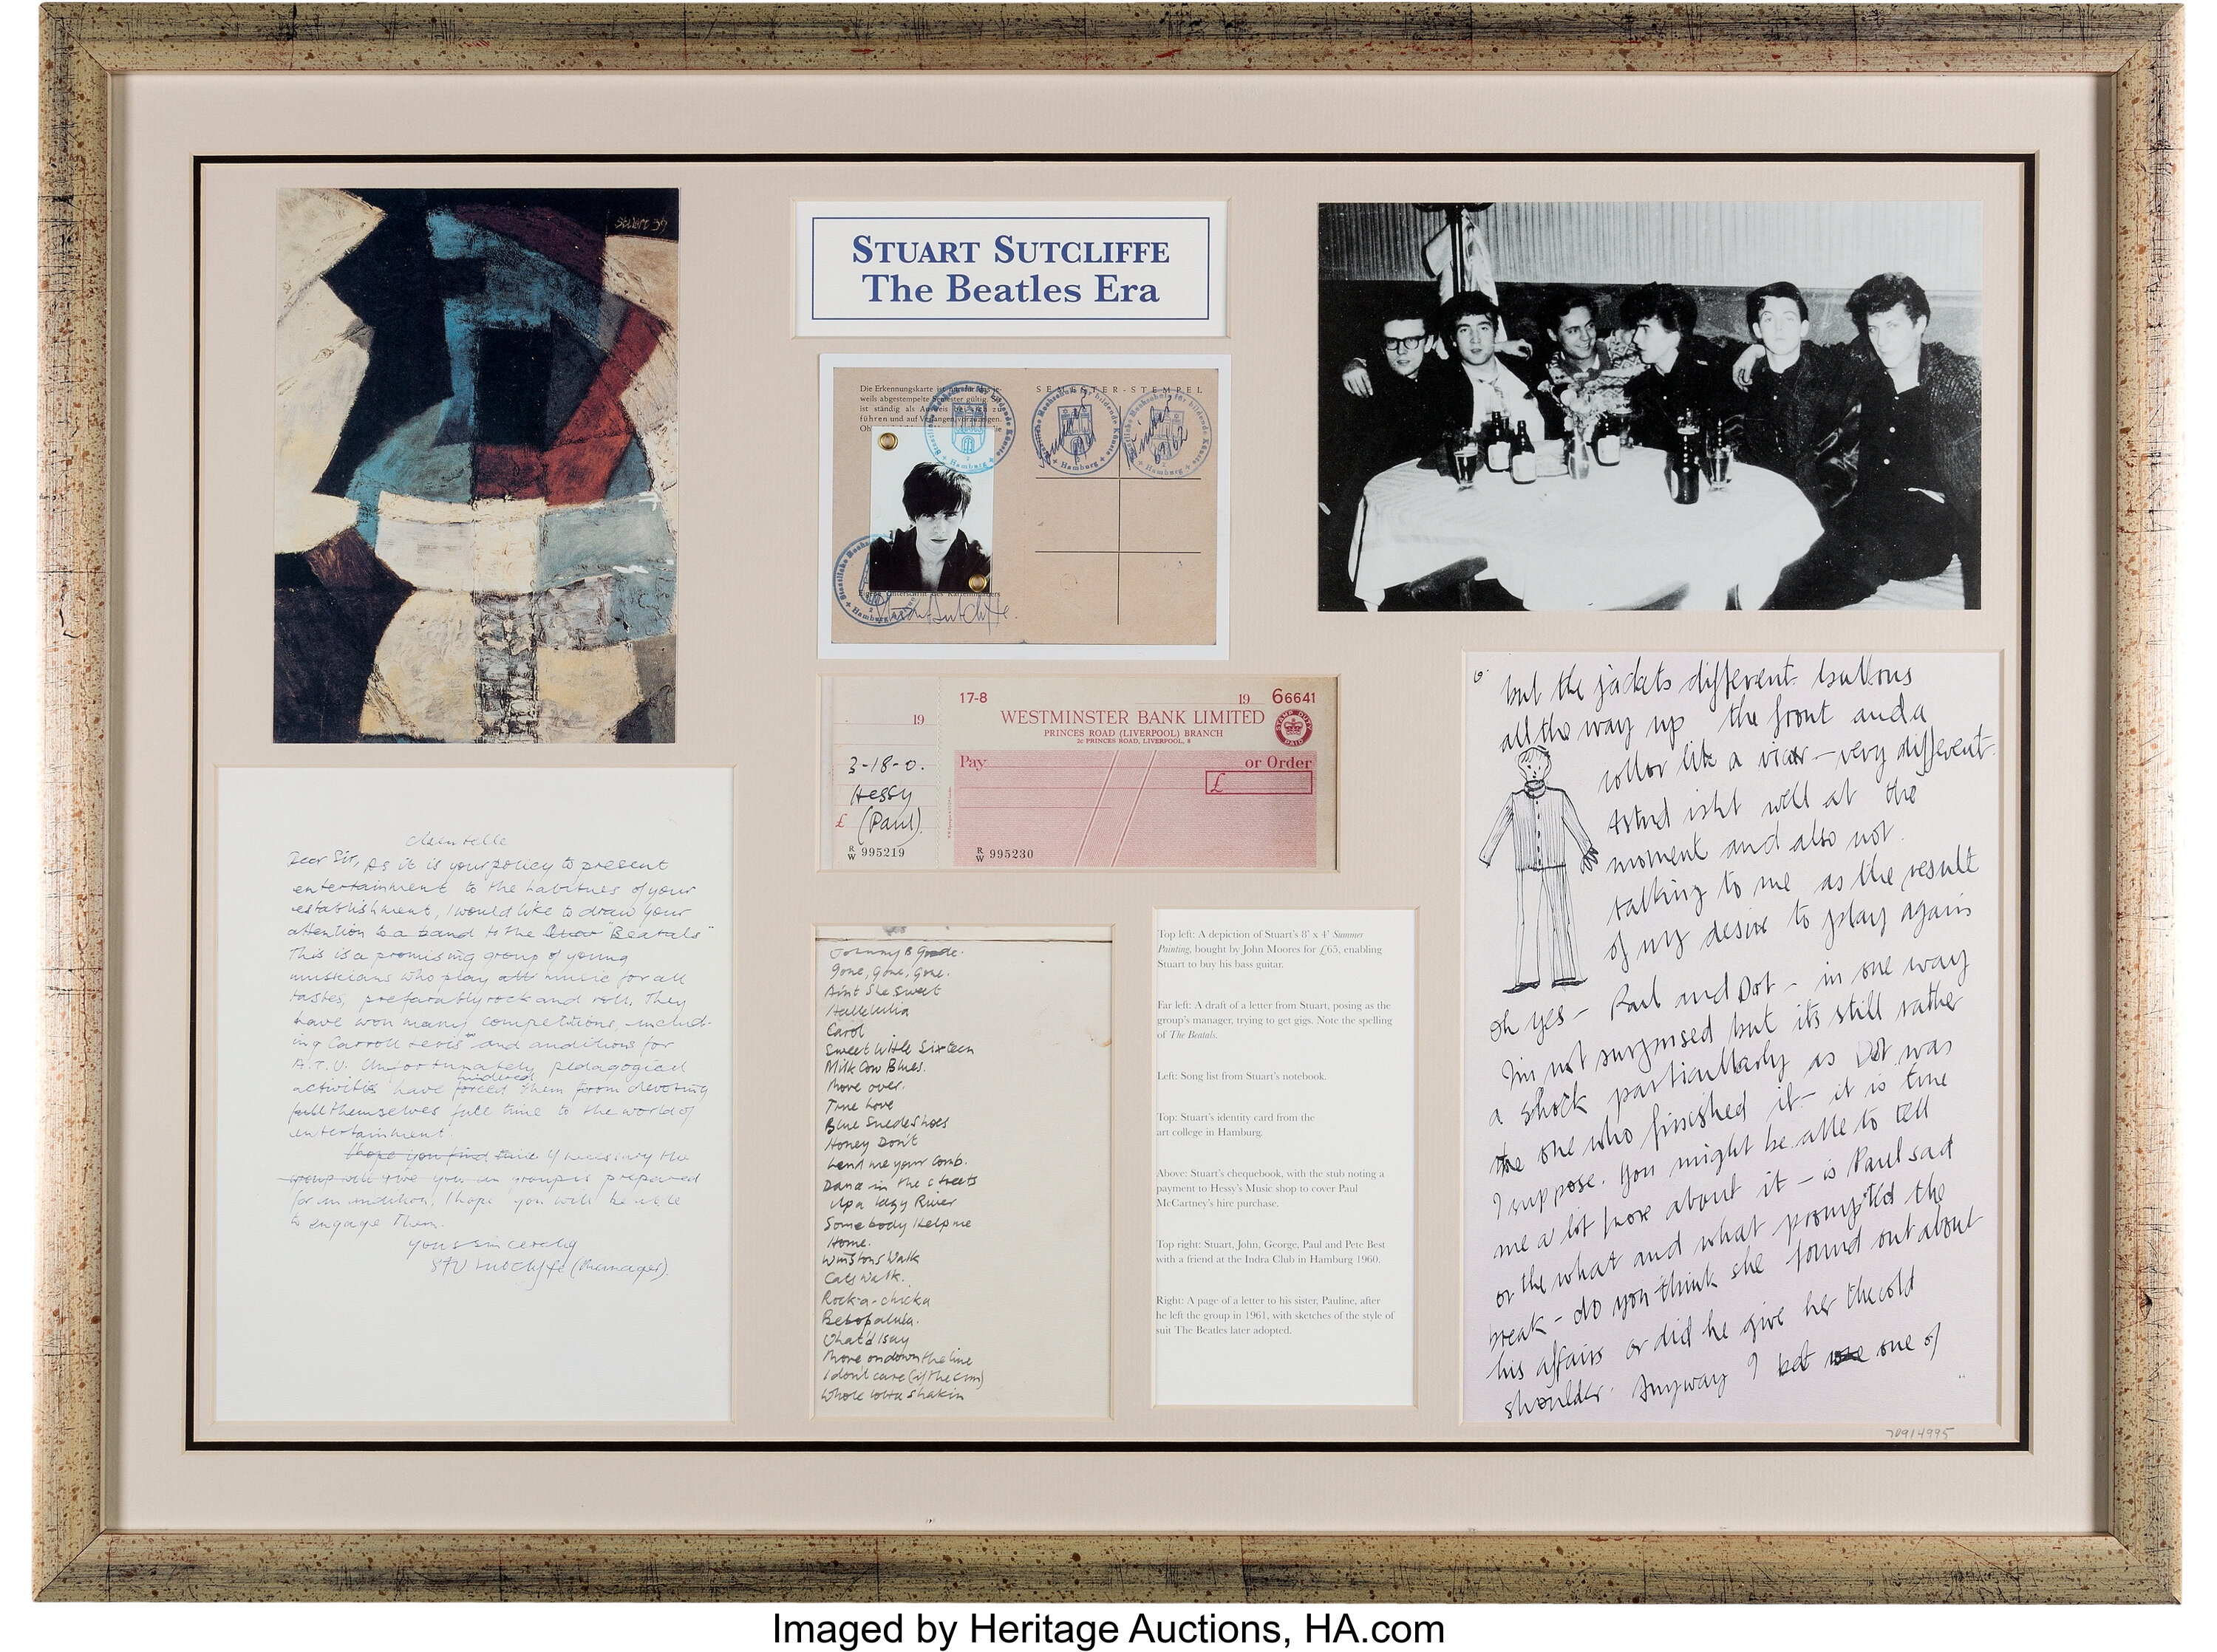 Stuart 59
STUART SUTCLIFFE
The Beatles Era
Die Erkennungskarte ist nur für das je-
weils abgestempelte Semester gültig. Sie
ist ständig als Ausweis bei sich zu
führen und auf Verlangen vorzuzeigen.
SEMESTER-STEMPEL
Staatliche Hochschule für bildende Künste
Hamburg
Sommer 1961
Staatliche Hochschule für bildende Künste
Hamburg
Winter 61/62
Eigenh. Unterschrift des Karteninhabers
Stuart Sutcliffe.
19
3-18-0.
Hessy
£ (Paul).
R/W 995219
17-8
19
66641
WESTMINSTER BANK LIMITED
PRINCES ROAD (LIVERPOOL) BRANCH
2c PRINCES ROAD, LIVERPOOL, 8
STAMP DUTY PAID
Pay
or Order
£
R/W 995230
Dear Sir, As it is your policy to present
entertainment to the habitues of your
establishment, I would like to draw your
attention to a band to the "Beatals"
This is a promising group of young
musicians who play all music for all
tastes, preferably rock and roll. They
have won many competitions, includ-
ing Carroll Levis and auditions for
A.T.V. Unfortunately pedagogical
activities have forced hindered them from devoting
full themselves full time to the world of
entertainment.
I hope you find time If necessary the
group will give you an group is prepared
for an audition, I hope you will be able
to engage them.
Yours sincerely
STU Sutcliffe (Manager).
Johnny B Goode.
Gone, Gone, Gone.
Aint She Sweet
Hallelulia
Carol
Sweet Little Sixteen
Milk Cow Blues.
Move over.
True Love
Blue Suede Shoes
Honey Don't
Lend me your Comb.
Dance in the streets
Up a lazy River
Somebody Help me
Home.
Winstons Walk
Cats Walk.
Rock-a-chicka
Bebopalula.
What'd I say
Move on down the line
I don't care (if the sun)
Whole lotta shakin
Top left: A depiction of Stuart's 8' x 4' Summer
Painting, bought by John Moores for £65, enabling
Stuart to buy his bass guitar.
Far left: A draft of a letter from Stuart, posing as the
group's manager, trying to get gigs. Note the spelling
of The Beatals.
Left: Song list from Stuart's notebook.
Top: Stuart's identity card from the
art college in Hamburg.
Above: Stuart's chequebook, with the stub noting a
payment to Hessy's Music shop to cover Paul
McCartney's hire purchase.
Top right: Stuart, John, George, Paul and Pete Best
with a friend at the Indra Club in Hamburg 1960.
Right: A page of a letter to his sister, Pauline, after
he left the group in 1961, with sketches of the style of
suit The Beatles later adopted.
6.
but the jackets different. buttons
all the way up the front and a
collor like a vicar - very different.
Astrid isht well at the
moment and also not
talking to me as the result
of my desire to play again
oh yes - Paul and Dot - in one way
I'm not surprised but its still rather
a shock particullarly as Dot was
the one who finished it - it is true
I suppose. You might be able to tell
me a lot more about it - is Paul sad
or the what and what prompted the
break - do you think she found out about
his affairs or did he give her the cold
shoulder. Anyway I bet one of
70914995
Imaged by Heritage Auctions, HA.com